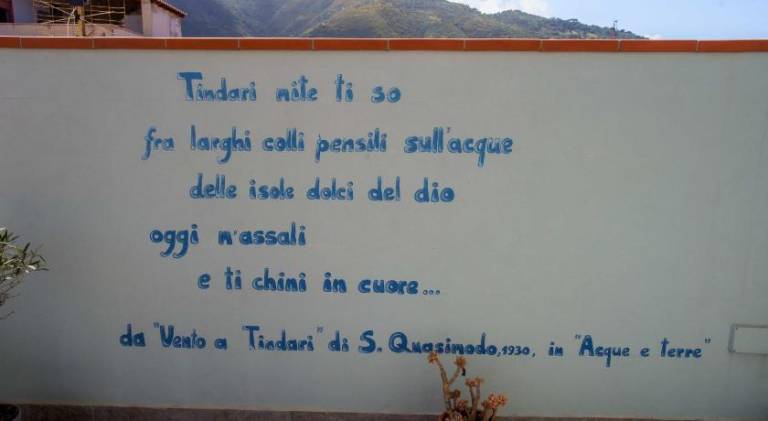 Tindari mite ti so
fra larghi colli pensili sull'acque
delle isole dolci del dio
oggi m'assali
e ti chini in cuore...
da "Vento a "Tindari" di S. Quasimodo, 1930, in "Acque e terre"